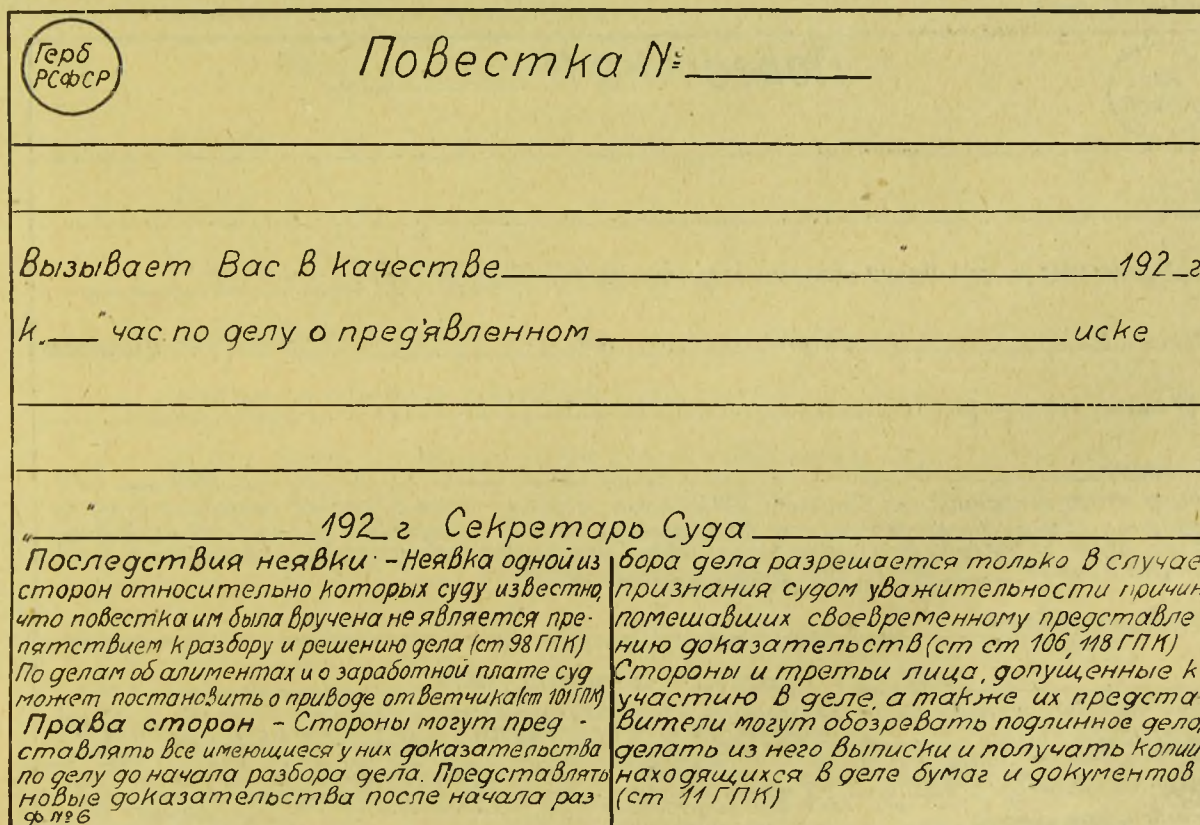 Герб
РСФСР
Повестка №
Вызывает Вас в качестве 192_г
к „ " час по делу о пред'явленном иске
„ " 192_г Секретарь Суда
Последствия неявки - Неявка одной из
сторон относительно которых суду известно,
что повестка им была вручена не является пре-
пятствием к разбору и решению дела (ст 98 ГПК)
По делам об алиментах и о заработной плате суд
может постановить о приводе ответчика (ст 101 ГПК)
Права сторон - Стороны могут пред-
ставлять все имеющиеся у них доказательства
по делу до начала разбора дела. Представлять
новые доказательства после начала раз
ф №6
бора дела разрешается только в случае
признания судом уважительности причин
помешавших своевременному представле
нию доказательств (ст ст 106, 118 ГПК)
Стороны и третьи лица, допущенные к
участию в деле, а также их предста
вители могут обозревать подлинное дело,
делать из него выписки и получать копии
находящихся в деле бумаг и документов
(ст 11 ГПК)